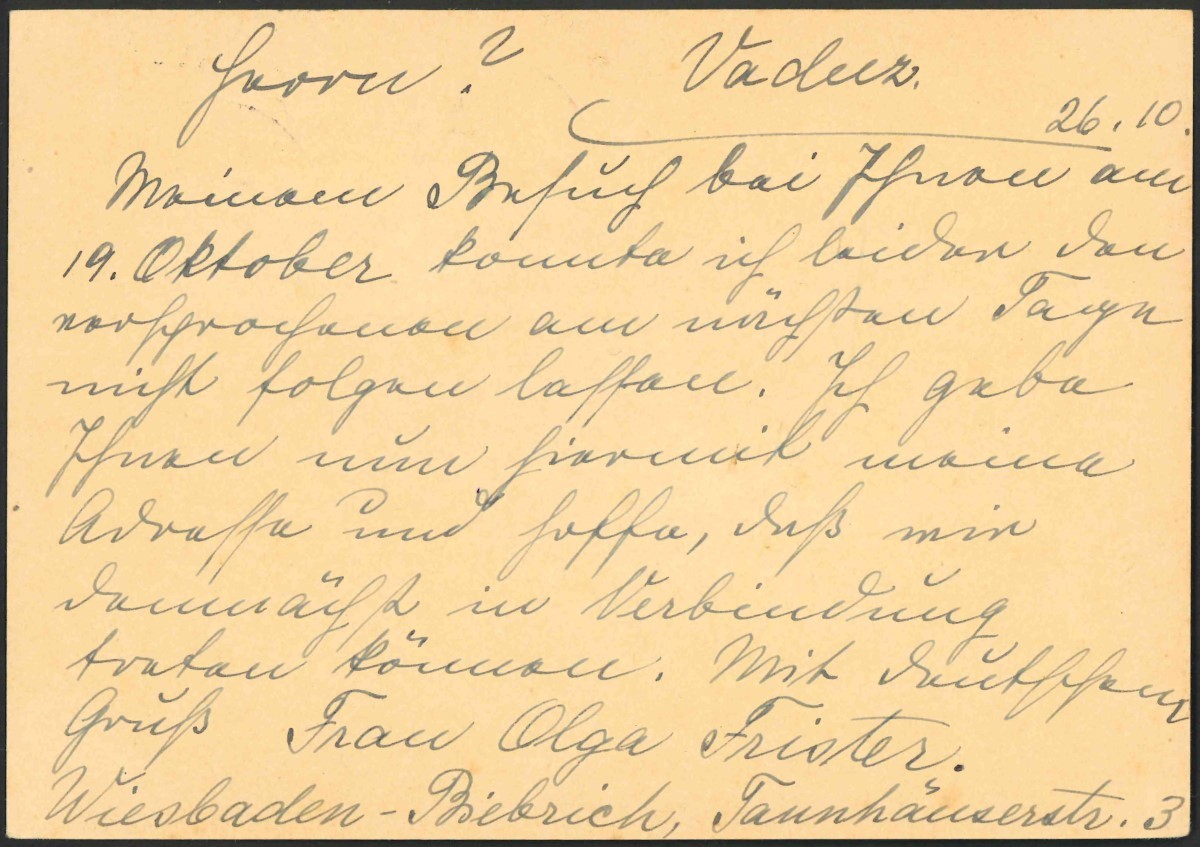 Herrn ? Vaduz.
26. 10.
Meinem Besuch bei Ihnen am
19. Oktober konnte ich leider den
versprochenen am nächsten Tage
nicht folgen lassen. Ich gebe
Ihnen nun hiermit meine
Adresse und hoffe, daß wir
demnächst in Verbindung
treten können. Mit deutschem
Gruß Frau Olga Frister.
Wiesbaden-Biebrich, Tannhäuserstr. 3